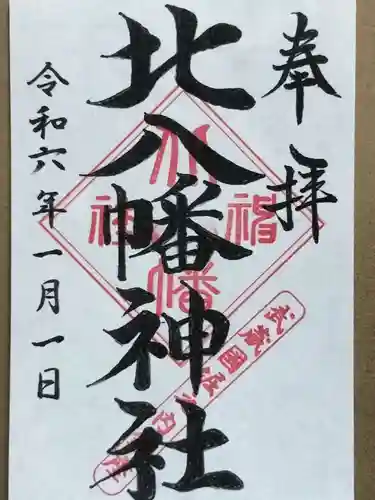 奉拝
北八幡神社
令和六年一月一日